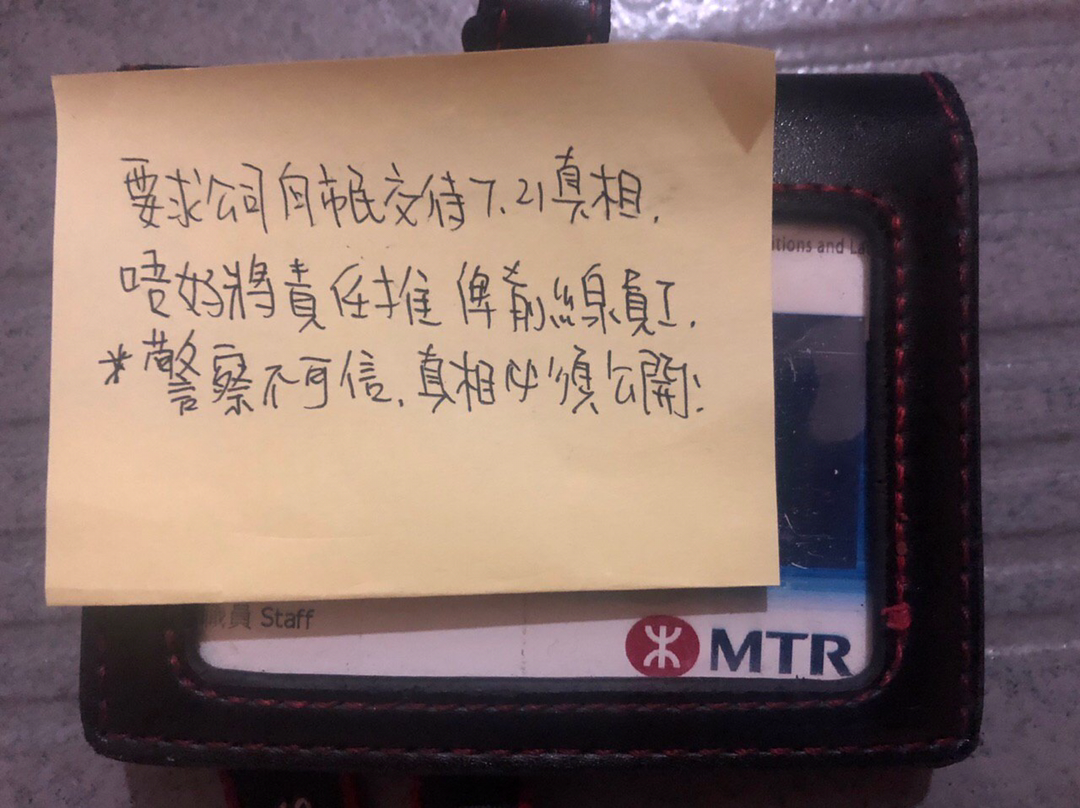 要求公司向市民交待7.21真相.
唔好將責任推俾前線員工.
*警察不可信.真相必須公開!
itions and La
職員 Staff
MTR